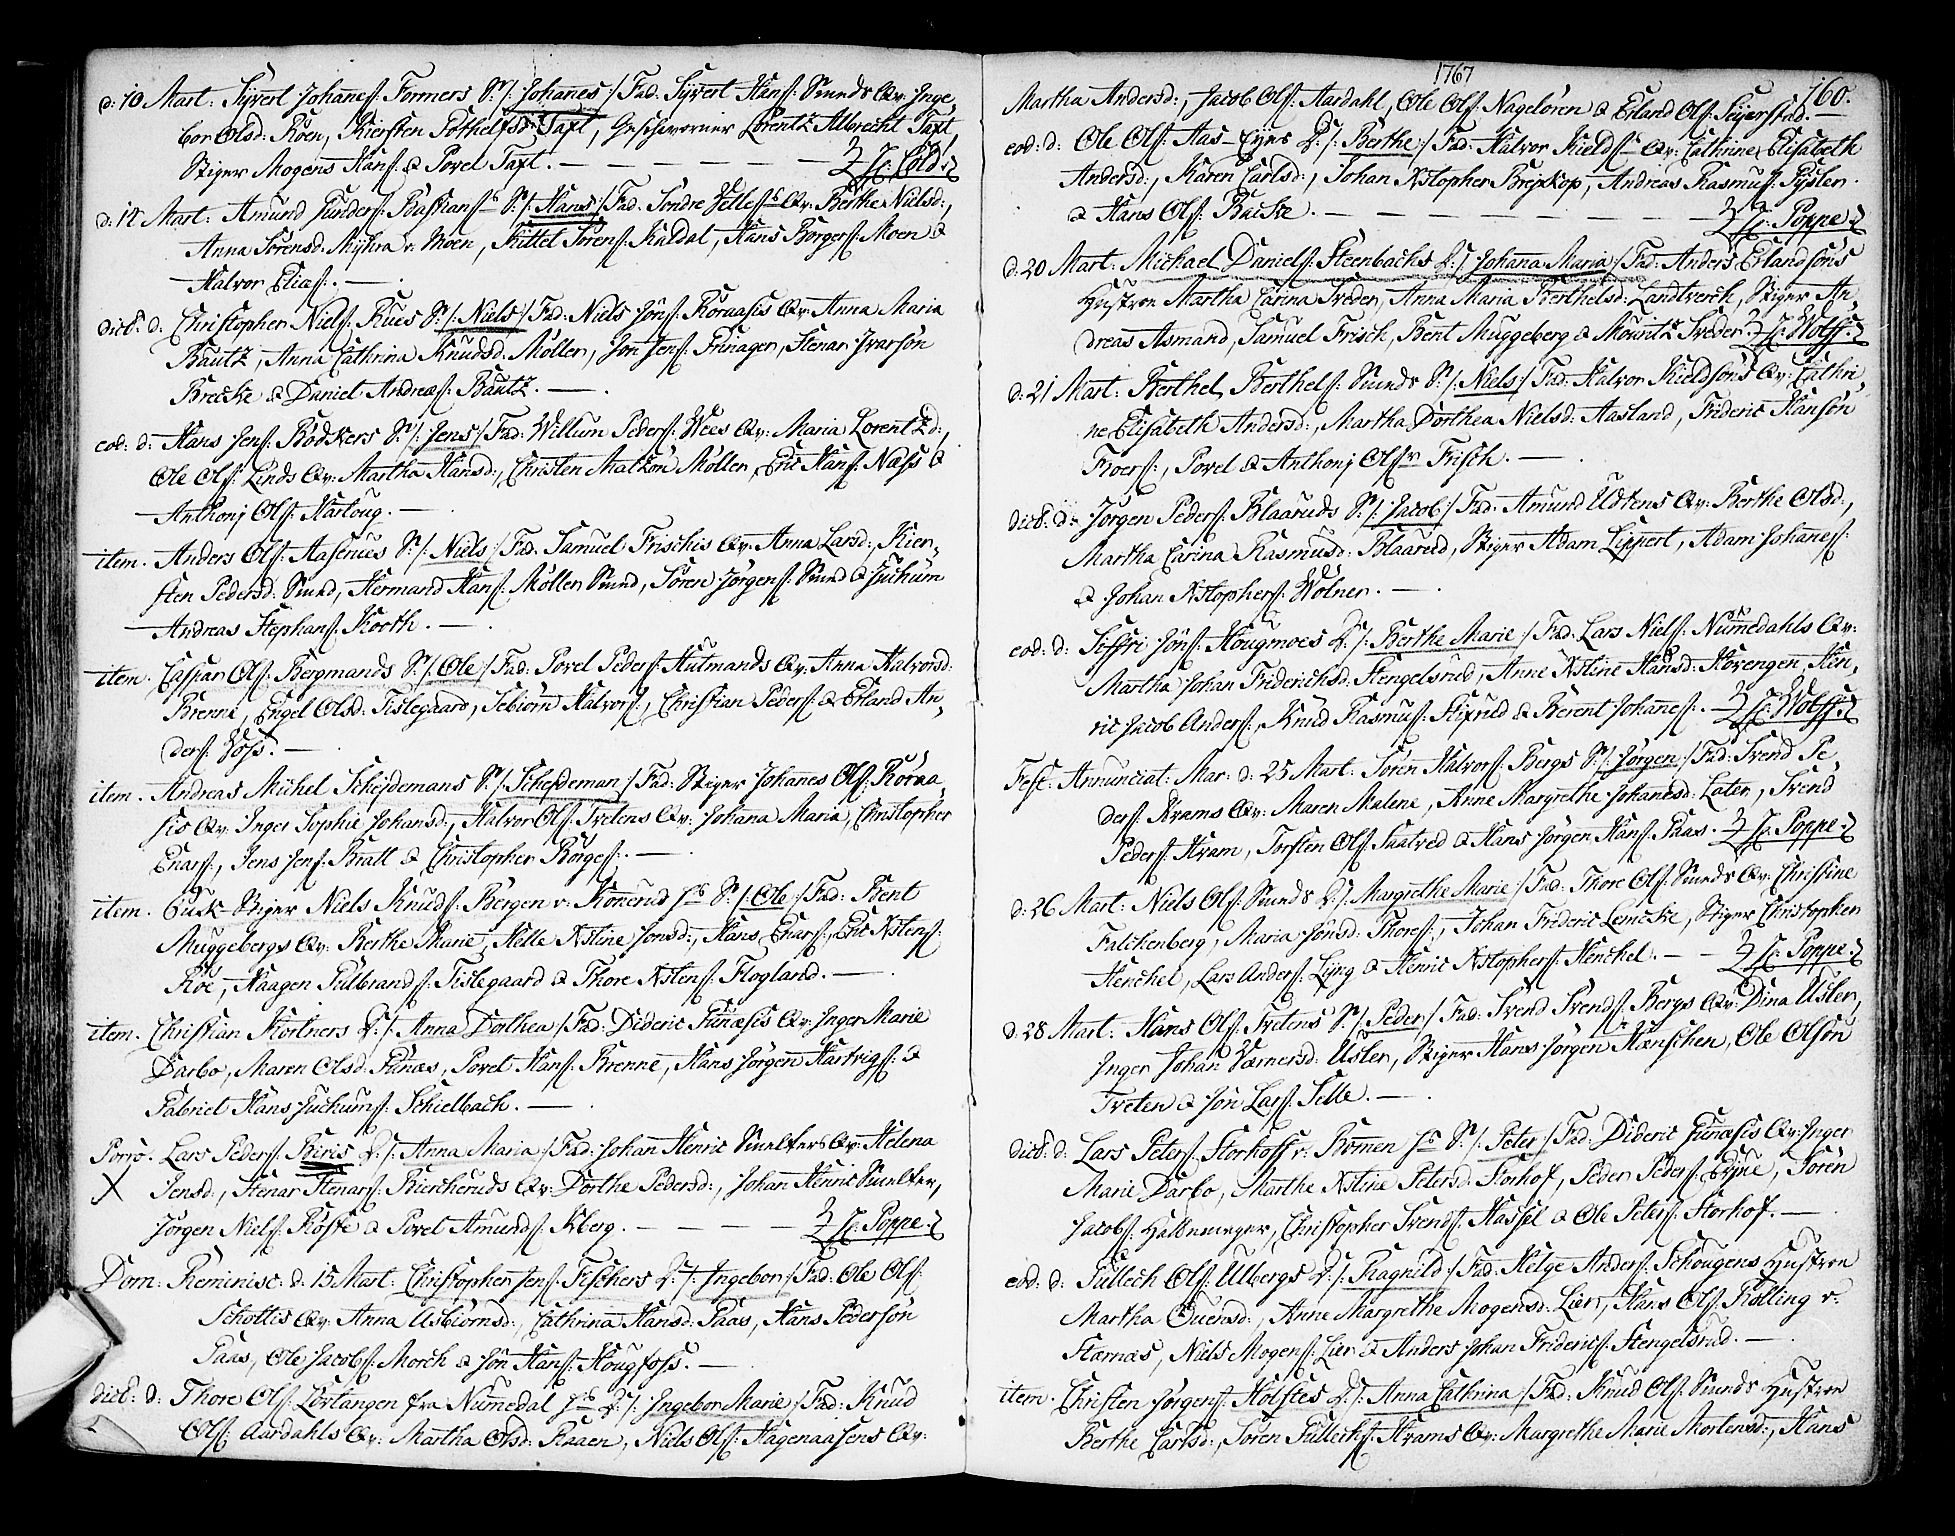 d: 10 Mart: Syvert Johanes: Formers S: /: Johanes :/ Fad: Syvert Hans: Smeds Qv: Inge-
bor Olsd: Roen, Kiersten Gothelfsd: Taxt, Geschworner Lorentz Albrecht Taxt,
Stiger Mogens Hans: & Povel Taxt. —
d: 14 Mart: Amund Bastians: S: /: Hans :/ Fad: Søndre Qv: Berthe Nielsd:,
Anna Sørensd: Myhra v: Moen, Kittel Sørens: Kaldal, Hans Borgers: Moen &
Halvor Elias: . —
dict: d: Christopher Niels: Rues S: /: Niels :/ Fad: Niels Jöns: Koraasis Qv: Anna Maria
Bautz, Anna Cathrina Knudsd: Møller, Jon Jens: Funager, Stenar Ivarsøn
Brecke & Daniel Andreas: Bautz. —
eod: d: Hans Jens: Bødkers S: /: Jens :/ Fad: Willum Peders: Wees Qv: Maria Lorentzd:,
Ole Ols: Linds Qv: Martha Hansd:, Christen Matzøn Møller, Eric Hans: Næss &
Anthonj Ols: Hartoug. —
item. Anders Ols: Aaserues S: /: Niels :/ Fad: Samuel Frischis Qv: Anna Larsd:, Kier-
sten Pedersd: Smed, Hermand Hans: Møller Smed, Søren Jørgens: Smed & Juchum
Andreas Stephans: Korth. —
item. Caspar Ols: Bergmands S: /: Ole :/ Fad: Povel Peders: Hutmands Qv: Anna Halvorsd:
Brenne, Engel Olsd: Tislegaard, Tebiørn Halvors:, Christian Peders: & Erland An-
ders: Foss. —
item. Andreas Michel Schejdemans S: /: Schejdeman :/ Fad: Stiger Johanes Ols: Koraa-
sis Qv: Inger Sophie Johansd:, Halvor Ols: Tvetens Qv: Johana Maria, Christopher
Enars:, Jens Jens: Bratt & Christopher Børges: . —
item. Stiger Niels Knuds: Børgen v: Konnerud S: /: Ole :/ Fad: Bent
Muggebergs Qv: Berthe Marie, Helle Xstine Jonsd:, Hans Enars:, Eric Xstens:
Røe, Haagen Gulbrands: Tislegaard & Thore Xstens: Flogland. —
item. Christian Kortners D: /: Anna Dorthea :/ Fad: Dideric Funæsis Qv: Inger Marie
Darbo, Maren Olsd: Funæs, Povel Hans: Brenne, Hans Jørgen Hartvigs: &
Gabriel Hans Juchums: Schielbach. —
Porro. Lars Peders: Beris D: /: Anna Maria :/ Fad: Johan Henric Smelters Qv: Helena
X Jensd:, Stenar Stenars: Kierckeruds Qv: Dorthe Pedersd:, Johan Henric Smelter,
Jørgen Niels: Røste & Povel Amunds: Aaberg. — Hr: Poppe.
Dom: Reminisc: d: 15 Mart: Christopher Jens: Fischers D: /: Ingebor :/ Fad: Ole Ols:
Schottis Qv: Anna Asbiørnsd:, Cathrina Hansd: Paas, Hans Pedersøn
Paas, Ole Jacobs: Morch & Jøn Hans: Hougfoss. —
dict: d: Thore Ols: Lostangen fra Numedal D: /: Ingebor Marie :/ Fad: Knud
Ols: Aardahls Qv: Martha Olsd: Raaen, Niels Ols: Hagenaasens Qv:
1767
160.
Martha Andersd:, Jacob Ols: Aardahl, Ole Ols: Nagelören & Erland Ols: Seyerstad. —
eod: d: Ole Ols: Aas-Eyes D: /: Berthe :/ Fad: Halvor Kields: Qv: Cathrine Elisabeth
Andersd:, Karen Carlsd:, Johan Xstopher Brejskop, Andreas Rasmus: Gysler
& Hans Ols: Backe. — Hr: Poppe.
d: 20 Mart: Michael Daniels: Steenbachs D: /: Johana Maria :/ Fad: Anders Erlandsøns
Hustroe Martha Carina Sveder, Anna Maria Berthelsd: Landtverck, Stiger An-
dreas Asmand, Samuel Frisch, Bent Muggeberg & Mouritz Sveder. Hr: Wolff.
d: 21 Mart: Berthel Berthels: Smeds S: /: Niels :/ Fad: Halvor Kieldsøns Qv: Cathri-
ne Elisabeth Andersd:, Martha Dorthea Nielsd: Aasland, Frideric Hansøn
Froers:, Povel & Anthonj Ols: Frisch. —
dict: d: Jørgen Peders: Blaaruds S: /: Jacob :/ Fad: Amund Udtens Qv: Berthe Olsd:,
Martha Carina Rasmusd: Blaarud, Stiger Adam Lippert, Adam Johanes:
& Johan Xstophers: Wölner. —
eod: d: Siffri Jöns: Hougmoes D: /: Berthe Marie :/ Fad: Lars Niels: Numedahls Qv:
Martha Johan Friderichsd: Stengelsrud, Anne Xstine Hansd: Korengen, Hen-
ric Jacob Anders:, Knud Rasmus: Stixrud & Berent Johanes: . — Hr: Wolff.
Fest: Annunciat: Mar: d: 25 Mart: Søren Halvors: Bergs S: /: Jørgen :/ Fad: Svend Pe-
ders: Krams Qv: Maren Malene, Anne Margrethe Johanesd: Later, Svend
Peders: Kram, Torsten Ols: Saatved & Hans Jørgen Hans: Paas. Hr: Poppe.
d: 26 Mart: Niels Ols: Smeds D: /: Margrethe Marie :/ Fad: Thore Ols: Smeds Qv: Christine
Falckenberg, Maria Jonsd: Thores:, Johan Frideric Lemcke, Stiger Christopher
Henckel, Lars Anders: Lyng & Henric Xstophers: Henckel. — Hr: Poppe.
d: 28 Mart: Hans Ols: Tvetens S: /: Peder :/ Fad: Svend Svends: Bergs Qv: Dina Usler,
Inger Johan Værnersd: Usler, Stiger Hans Jørgen Hænschen, Ole Olsøn
Tveten & Jøn Lars: Selle. —
dict: d: Lars Peters: Storhoff v: Bomen S: /: Peter :/ Fad: Dideric Funæsis Qv: Inger
Marie Darbo, Marthe Xstine Petersd: Storhof, Peder Peders: Eyne, Søren
Jacobs: Hattemager, Christopher Svends: Hassel & Ole Peters: Storhof. —
eod: d: Gullech Ols: Ulbergs D: /: Ragnild :/ Fad: Helge Anders: Schougens Hustroe
Martha Ouensd:, Anne Margrethe Mogensd: Lier, Hans Ols: Kolling v:
Stærnæs, Niels Mogens: Lier & Anders Johan Friderics: Stengelsrud. —
item. Christen Jørgens: Holstes D: /: Anna Cathrina :/ Fad: Knud Ols: Smeds Hustroe
Berthe Carlsd:, Søren Gullechs: Krams Qv: Margrethe Marie Mortensd:, Hans